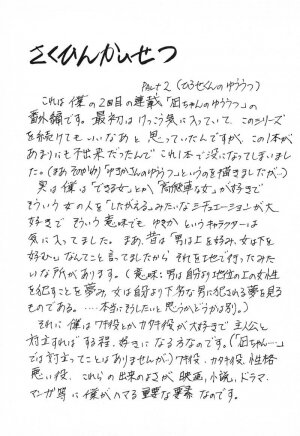 さくひんかいせつ
Part 2 (ひろせくんのゆううつ)
これは僕の2回目の連載「凪ちゃんのゆううつ」の
番外編です。最初はけっこう気に入っていて、このシリーズ
を続けてもいいなあと思っていたんですが、この1本が
あまりにも不出来だったんでこれ1本で没になってしまいまし
た。(まあそのかわり「ゆきかさんのゆううつ」というのを描きましたが…)
実は僕は「できる女」とか「高飛車な女」が好きで
そういう女の人を「したがえる」みたいなシチュエーションが大
好きでそういう意味でも ゆきか というキャラクターは
気に入ってました。まあ、昔は「男は上を好み、女は下を
好む」なんてこと言ってましたから それを地で行ったみた
いな所があります。(意味:男は自分より地位の上の女性
を犯すことを夢み、女は自分より下劣な男に犯される夢を見る
ものである。……本当にそうしたいと思うかどうかは別。)
それに僕はワキ役とかカタキ役が大好きで主人公と
対立すればする程、好きになる方なのです。(「凪ちゃん…」
では対立ってことはありませんが…)ワキ役、カタキ役、性格
悪い役、これらの出来のよさが、映画、小説、ドラマ、
マンガ等に僕がハマる重要な要素なのです。